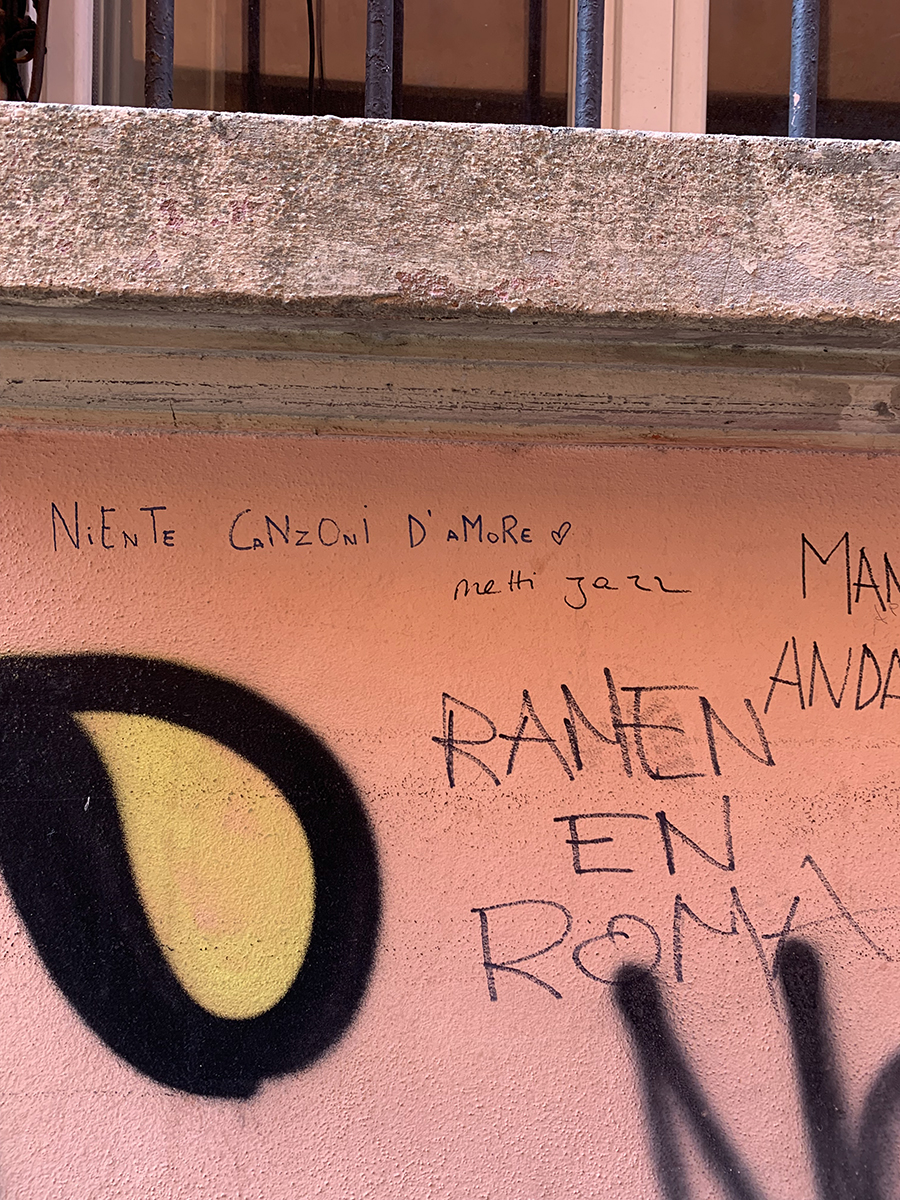 NIENTE CANZONI D'AMORE
metti jazz
MAN
ANDA
RAMEN
EN
ROMA